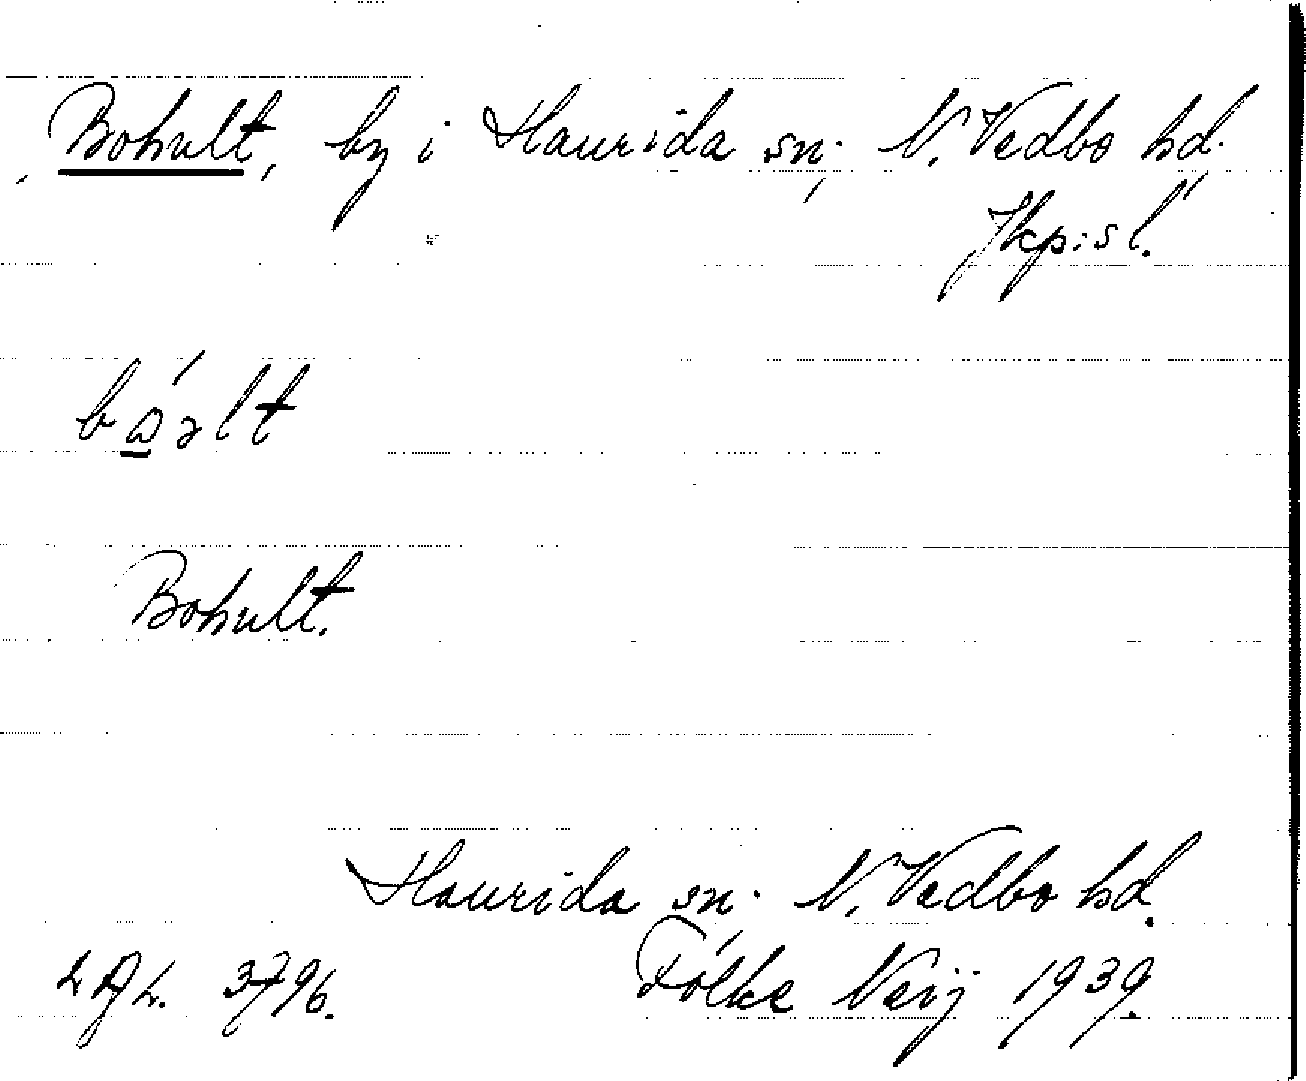 Bohult, by i Haurida sn. N. Vedbo hd.
Jkp:s l.
bώəlt
Bohult.
Haurida sn. N. Vedbo hd.
3796. Folke Neij 1939.